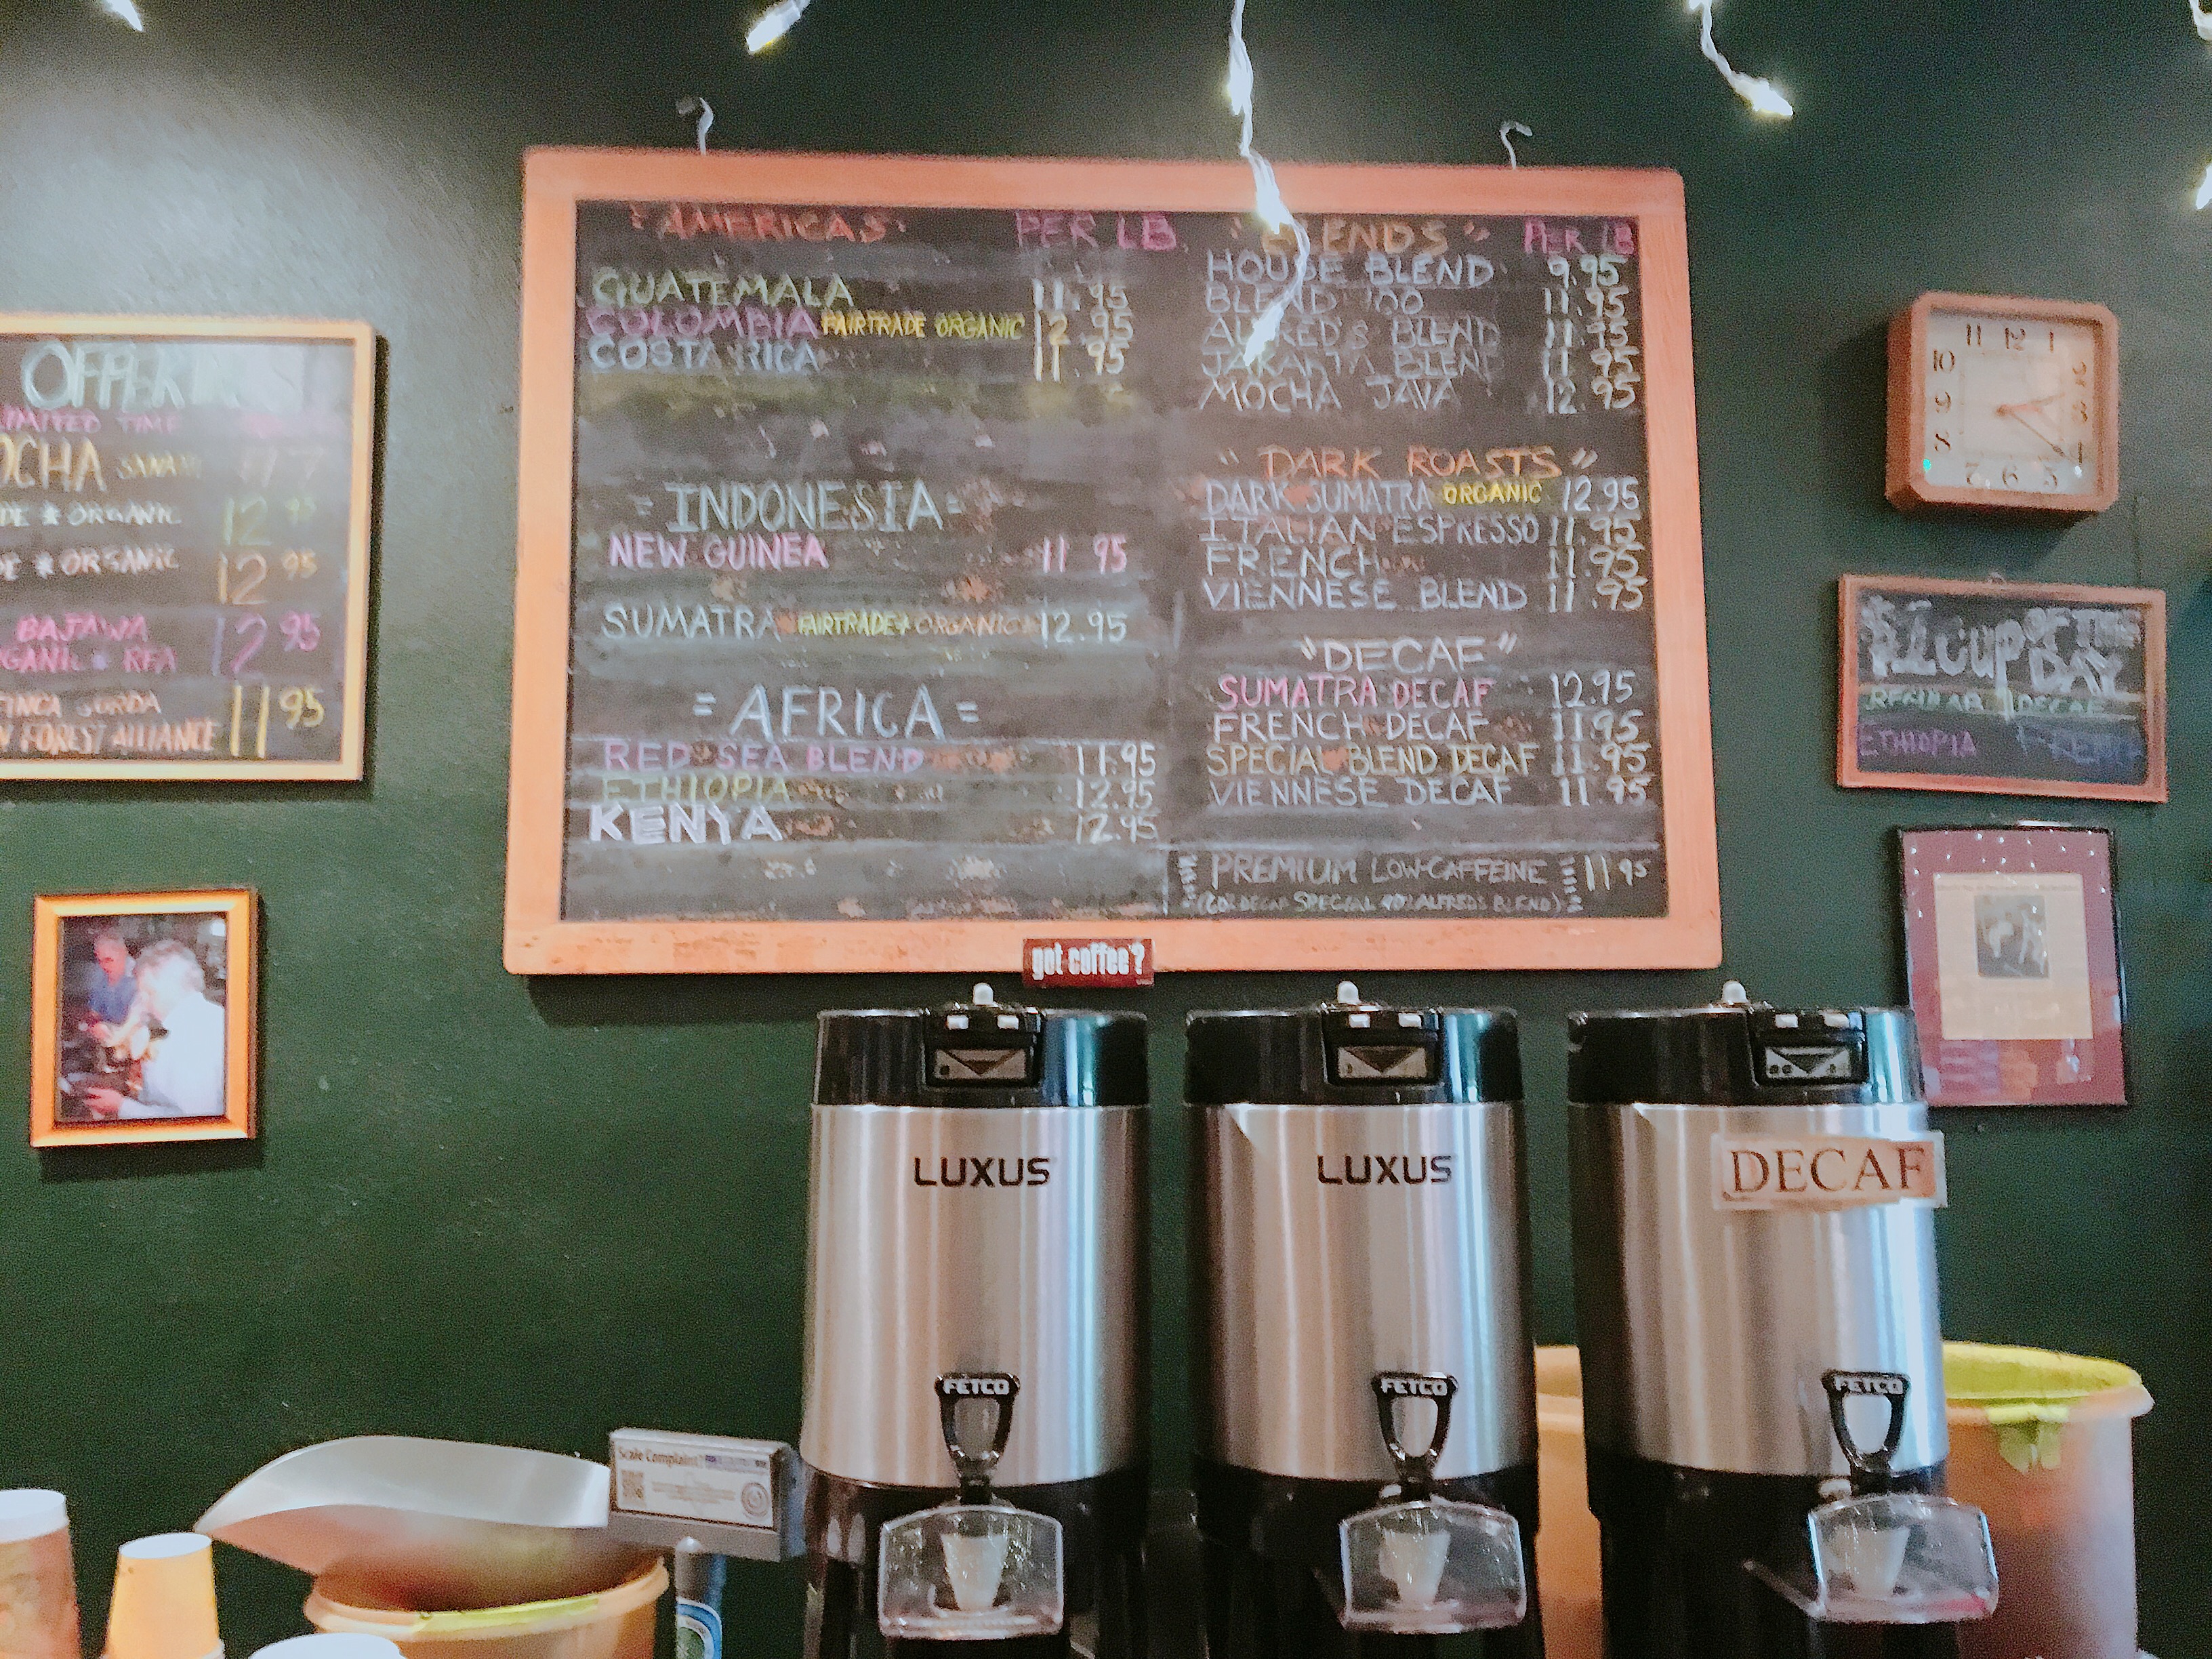 OFFERINGS
LIMITED TIME
OCHA SANANI 17
DE * ORGANIC 12 95
DE * ORGANIC 12 95
BAJAWA
GANIC * RFA 12 95
FINCA GORDA
N FOREST ALLIANCE 11 95
"AMERICAS" PER LB
GUATEMALA 11.95
COLOMBIA FAIRTRADE ORGANIC 12.95
COSTA RICA 11.95
= INDONESIA =
NEW GUINEA 11 95
SUMATRA FAIRTRADE + ORGANIC 12.95
= AFRICA =
RED SEA BLEND 11.95
ETHIOPIA 12.95
KENYA 12.95
"BLENDS" PER LB
HOUSE BLEND 9.95
BLEND 100 11.95
ALFRED'S BLEND 11.95
JAKARTA BLEND 11.95
MOCHA JAVA 12.95
"DARK ROASTS"
DARK SUMATRA ORGANIC 12.95
ITALIAN ESPRESSO 11.95
FRENCH 11.95
VIENNESE BLEND 11.95
"DECAF"
SUMATRA DECAF 12.95
FRENCH DECAF 11.95
SPECIAL BLEND DECAF 11.95
VIENNESE DECAF 11.95
PREMIUM LOW-CAFFEINE 11 95
DECAF SPECIAL ALFREDS BLEND)
got coffee?
11 12 1
10 2
9 3
8 4
7 6 5
$1 CUP OF THE DAY
REGULAR DECAF
ETHIOPIA FRENCH
LUXUS
LUXUS
DECAF
FETCO
FETCO
FETCO
Scale Complaint?